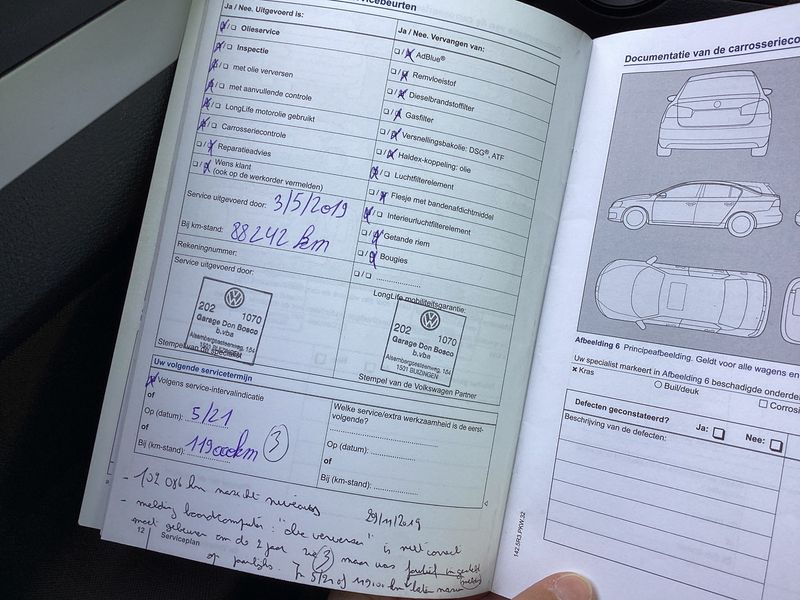 cebeurten
Ja / Nee. Uitgevoerd is:
Olieservice
Inspectie
met olie verversen
met aanvullende controle
LongLife motorolie gebruikt
Carrosseriecontrole
Reparatieadvies
Wens klant
(ook op de werkorder vermelden)
Service uitgevoerd door: 3/5/2019
Bij km-stand: 88242 km
Rekeningnummer:
Service uitgevoerd door:
202 1070
Garage Don Bosco
b.vba
Alsembergsesteenweg, 184
1501 BUIZINGEN
Stempel van de specialist
Ja / Nee. Vervangen van:
AdBlue®
Remvloeistof
Dieselbrandstoffilter
Gasfilter
Versnellingsbakolie: DSG®, ATF
Haldex-koppeling: olie
Luchtfilterelement
Flesje met bandenafdichtmiddel
Interieurluchtfilterelement
Getande riem
Bougies
LongLife mobiliteitsgarantie:
202 1070
Garage Don Bosco
b.vba
Alsembergsesteenweg, 184
1501 BUIZINGEN
Stempel van de Volkswagen Partner
Uw volgende servicetermijn
Volgens service-intervalindicatie
of
Op (datum): 5/21
of
Bij (km-stand): 119000km 3
Welke service/extra werkzaamheid is de eerst-
volgende?
Op (datum):
of
Bij (km-stand):
- 102 086 km nazicht niveaus 29/11/2019
- melding boordcomputer: "olie verversen" is niet correct
moet gebeuren om de 2 jaar zie 3 maar was foutief ingesteld
op jaarlijks. 5/21 of 119000 km later
12 Serviceplan
142.5R3.PKW.32
Documentatie van de carrosserieco
Afbeelding 6 Principeafbeelding. Geldt voor alle wagens en
Uw specialist markeert in Afbeelding 6 beschadigde onderde
× Kras
Buil/deuk
Corrosi
Defecten geconstateerd? Ja: Nee:
Beschrijving van de defecten: